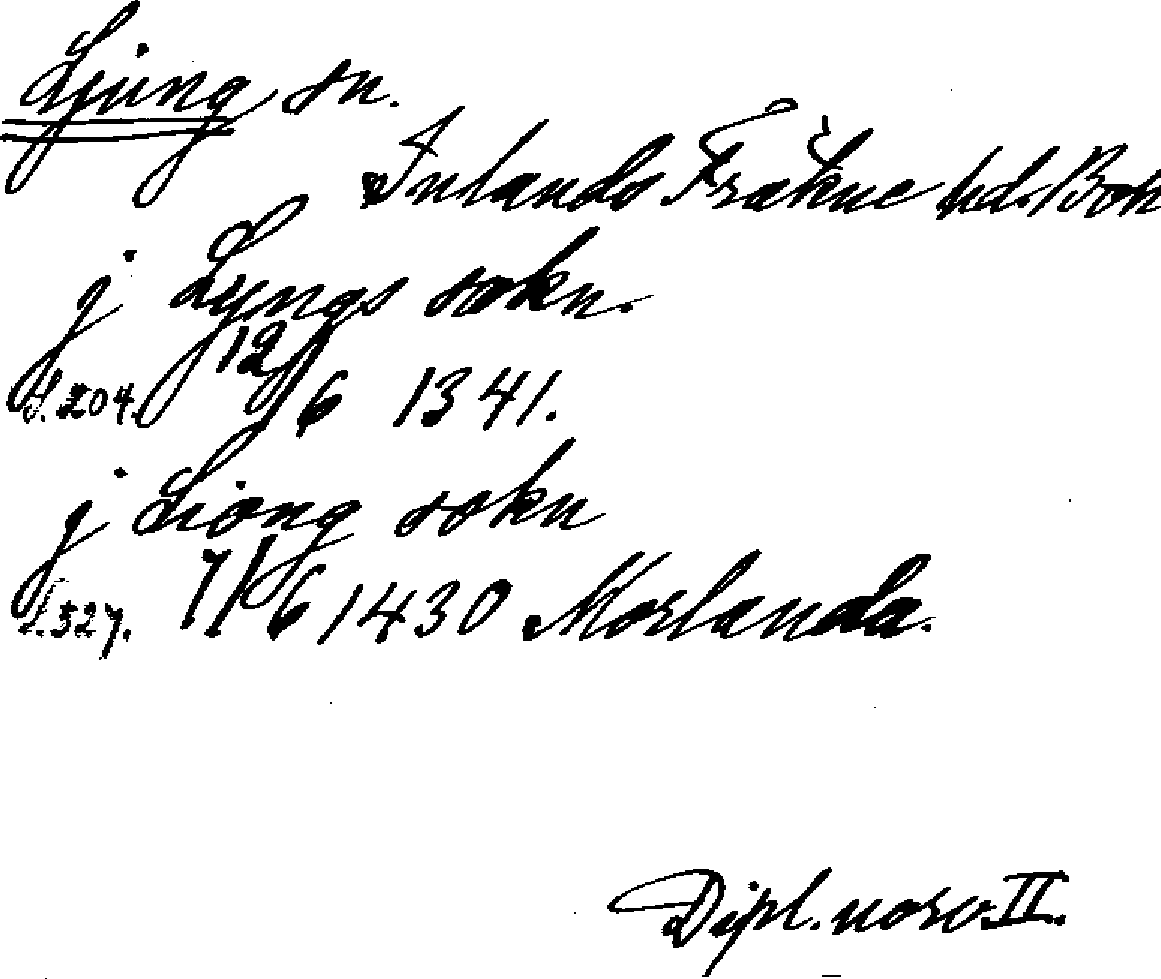 Ljung sn.
Inlands Fräkne hd. Boh
j Lyngs sokn.
S. 204. 12/6 1341.
j Liong sokn
S. 527. 7/6 1430 Morlanda.
Dipl. norv. II.